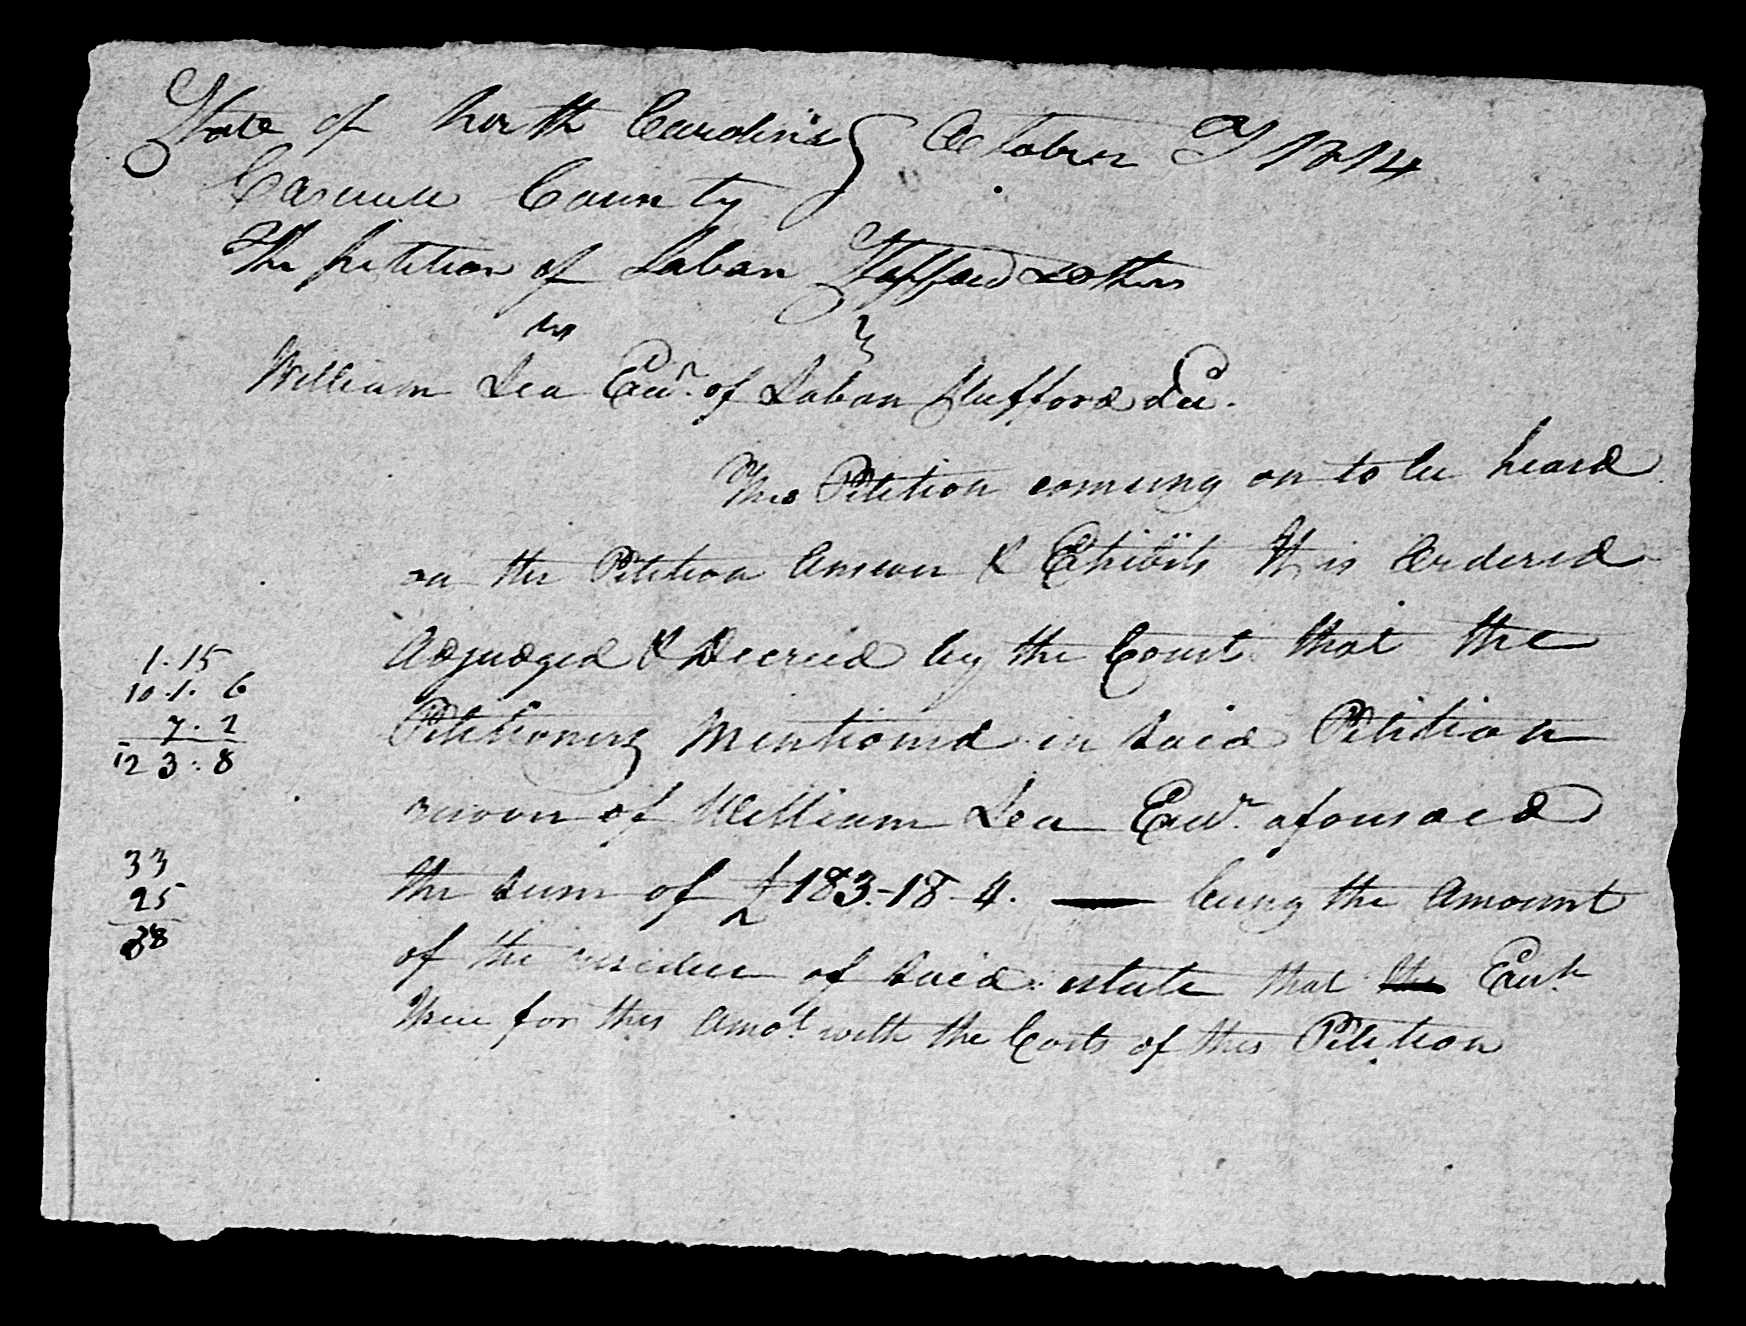 State of North Carolina } October T 1814
Caswell County
The petition of Laban Stafford & others
vs }
William Lea Exr. of Laban Stafford Dec.
This Petition coming on to be heard
on the Petition Answer & Exhibits It is Ordered
Adjudged & Decreed by the Court that the
Petitioners Mentioned in said Petition
recover of William Lea Exr. aforesaid
the sum of £183-18-4. being the amount
of the residue of said estate that the Exn.
Issue for this Amot. with the Costs of this Petition
1.15
10.1.6
7.2
12 3:8
33
25
38